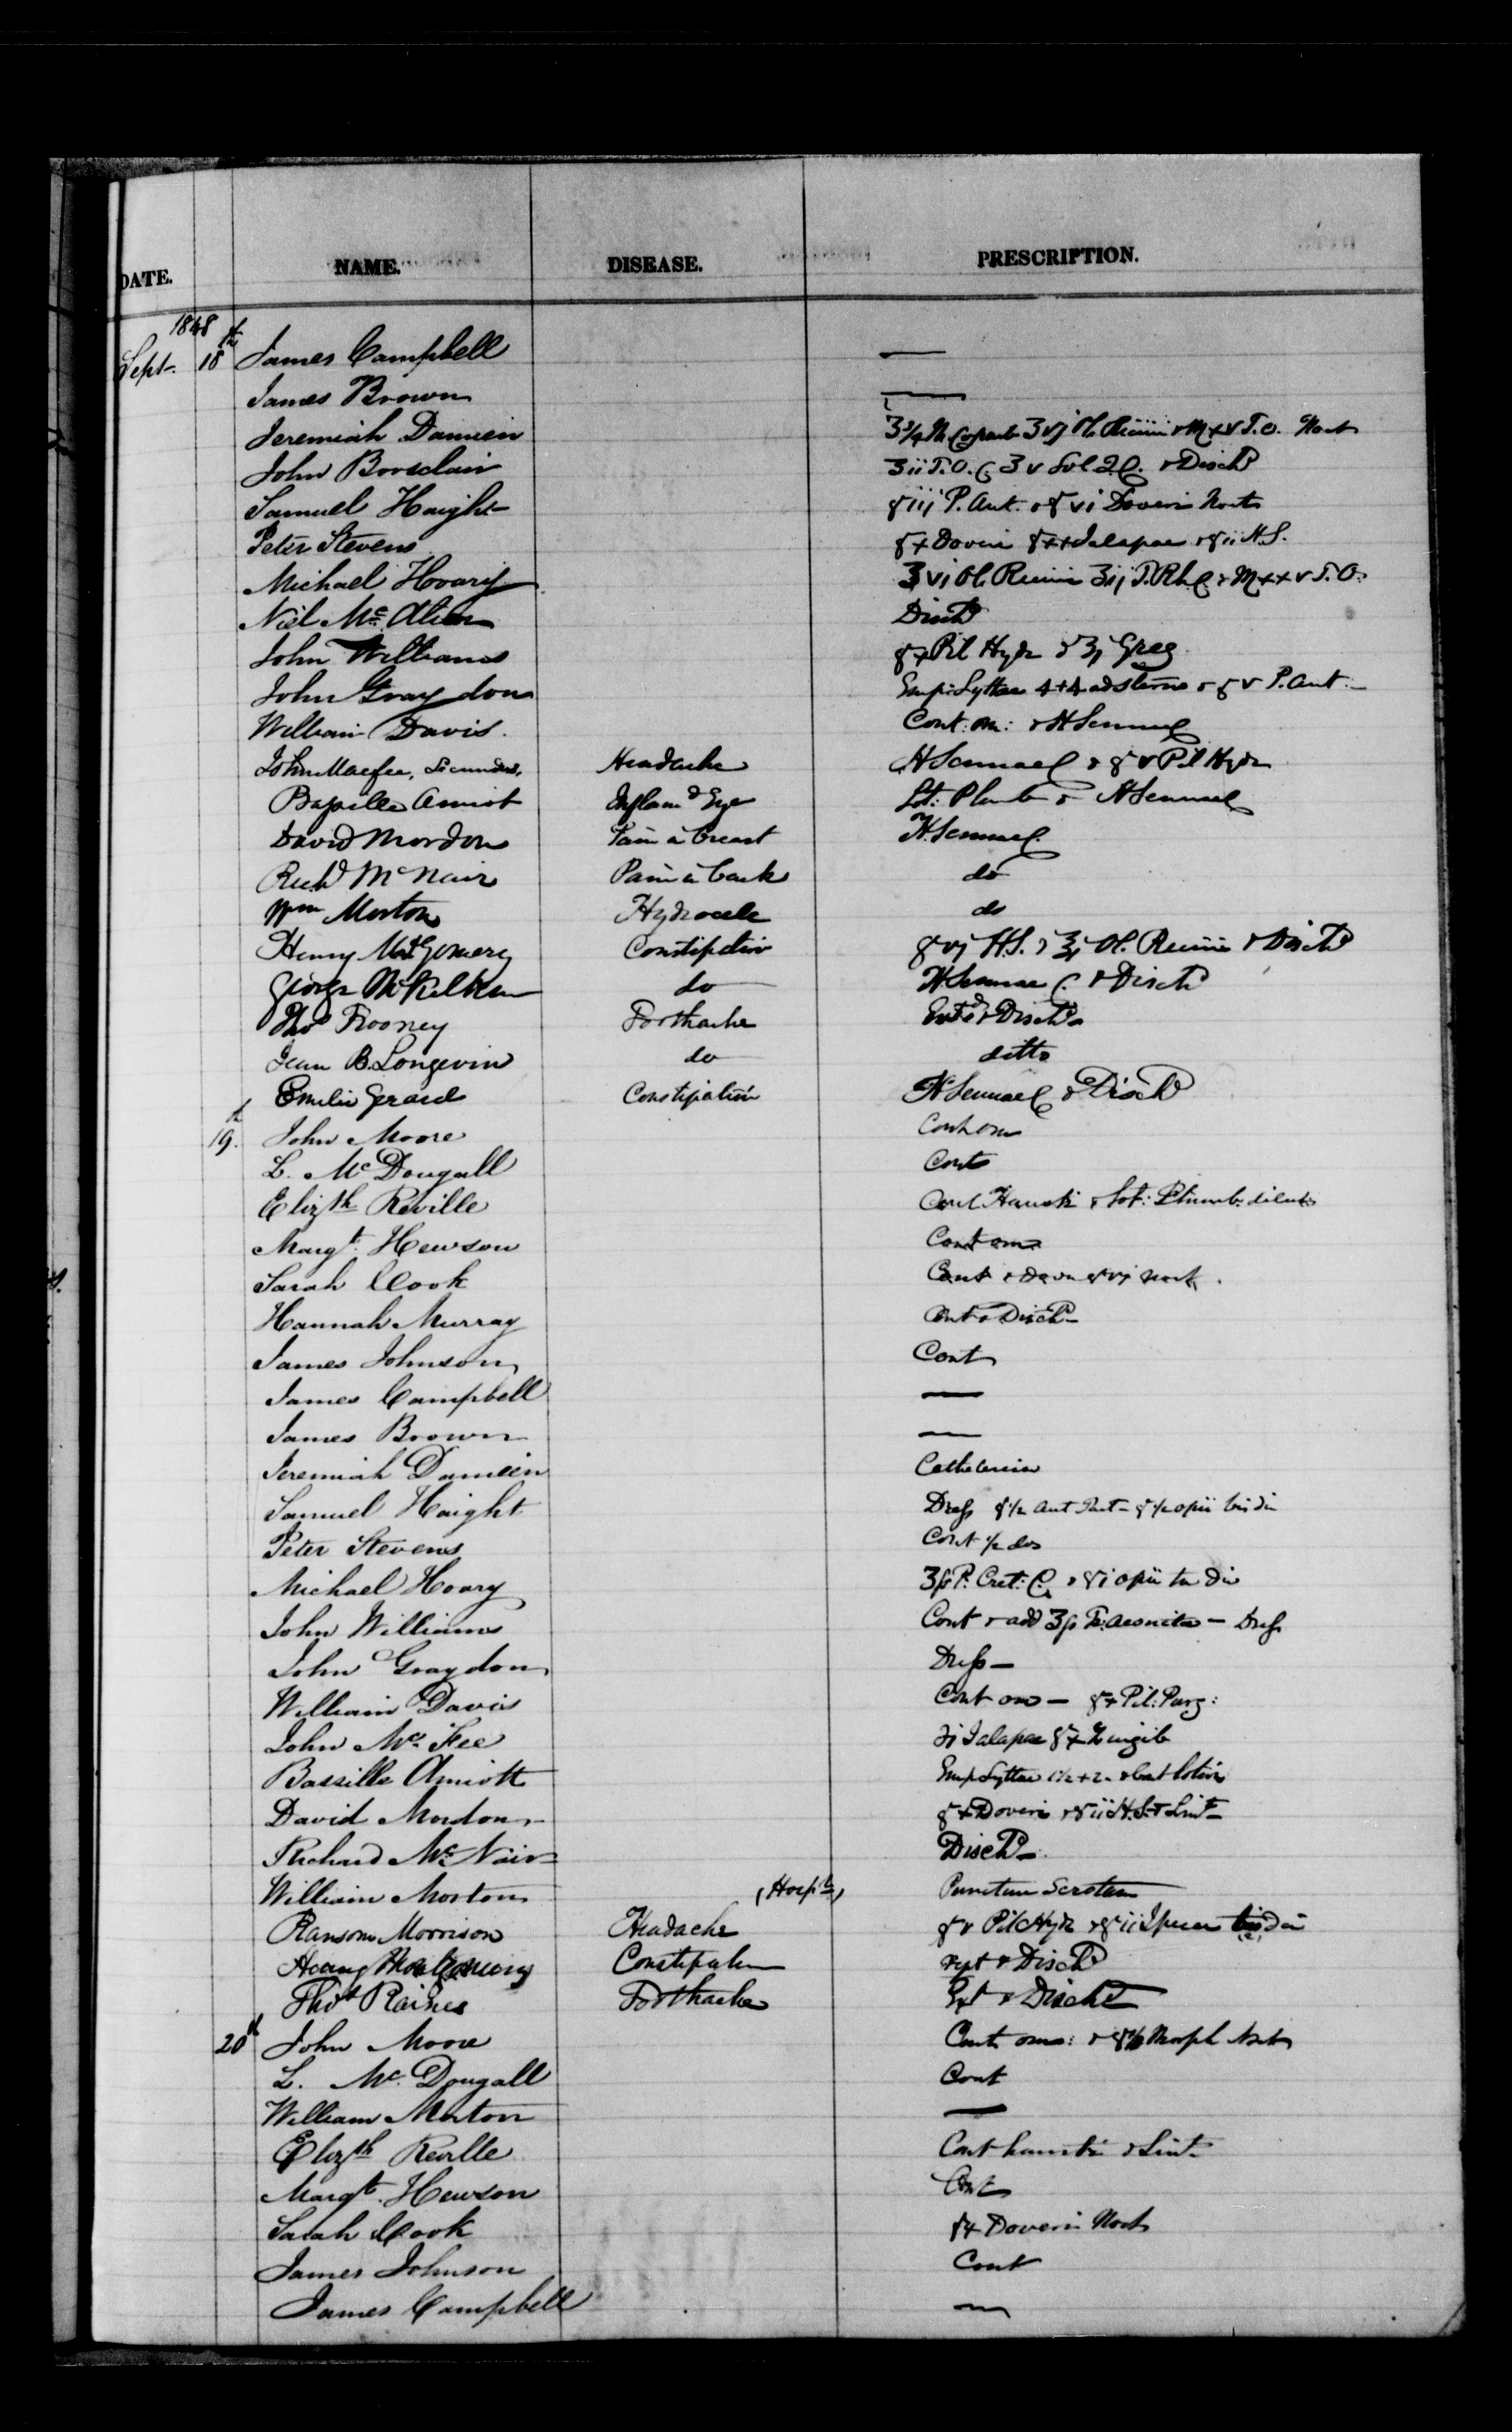 DATE. NAME. DISEASE. PRESCRIPTION.
1848
Sept. 18th James Campbell —
James Brown —
Jeremiah Damien
John Boisclair & Dischd
Samuel Haight giij P. Ant. & g vi Doveri Nocte
Peter Stevens g x Doveri g xx Jalapae & g ii H.S.
Michael Hoary ʒvi Ol. Ricini ʒij T. Rh. C. & M xx v T.O.
Niel Mc. Dischd
John Williams g x Pil Hydr & ʒj Greg
John Graydon Emp: Lyttae 4+4 ad Sterno & g v P. Ant. —
William Davis. Cont. om: & H Sennae C
John Macfee, Secundus, Headache H Sennae C & g v Pil Hydr
Bapille Amiot Inflamd Eye Lot: Plumb & H Sennae C
David Mordon Pain in breast H. Sennae C.
Richd McNair Pain in back do
Wm Morton Hydrocele do
Henry Montgomery Constipation g vj H.S. & ʒj Ol. Ricini & Dischd
George do H Sennae C. & Dischd
Thos Frooney Toothache Extd & Dischd
Jean B. Longevin do ditto
Emelie Gerard Constipation H Sennae C & Dischd
19th. John Moore Cont om
L. McDougall Cont
Elizth Reville Cont Hausti & Lot: Plumb: dilut
Margt. Hewson Cont om
Sarah Cook Cont & Dover g vj noct.
Hannah Murray Cont & Dischd —
James Johnson Cont
James Campbell —
James Brown —
Jeremiah Damien
Samuel Haight Dress g 1/2 Ant Tart — g 1/2 opii bis di
Peter Stevens Cont 1/2 dos
Michael Hoary ʒſs P. Cret: C. & g i opii ter di
John Williams Cont & add ʒſs Tr. Aconite — Dress
John Graydon Dress —
William Davis Cont om — g x Pil: Purg:
John Mc. Fee ʒi Jalapae g x Zingib
Bassille Amiott Emp Lyttae 1 1/2 + 2 & Cont lotion
David Mordon g x Doveri & g ii H.S. & Lint
Richard Mc. Nair Dischd —
William Morton (Hospl) Puncture Scrotum
Ransom Morrison Headache g v Pil Hydr & g ii Ipecac bis di
Henry Montgomery Constipation rept & Dischd
Thos Raines Toothache Ext & Dischd
20th John Moore Cont om: & Morph Nocte
L. Mc. Dougall Cont
William Morton —
Elizth Reville Cont hausti & Lint
Margt. Hewson Cont
Sarah Cook g x Doveri Noct
James Johnson Cont
James Campbell —